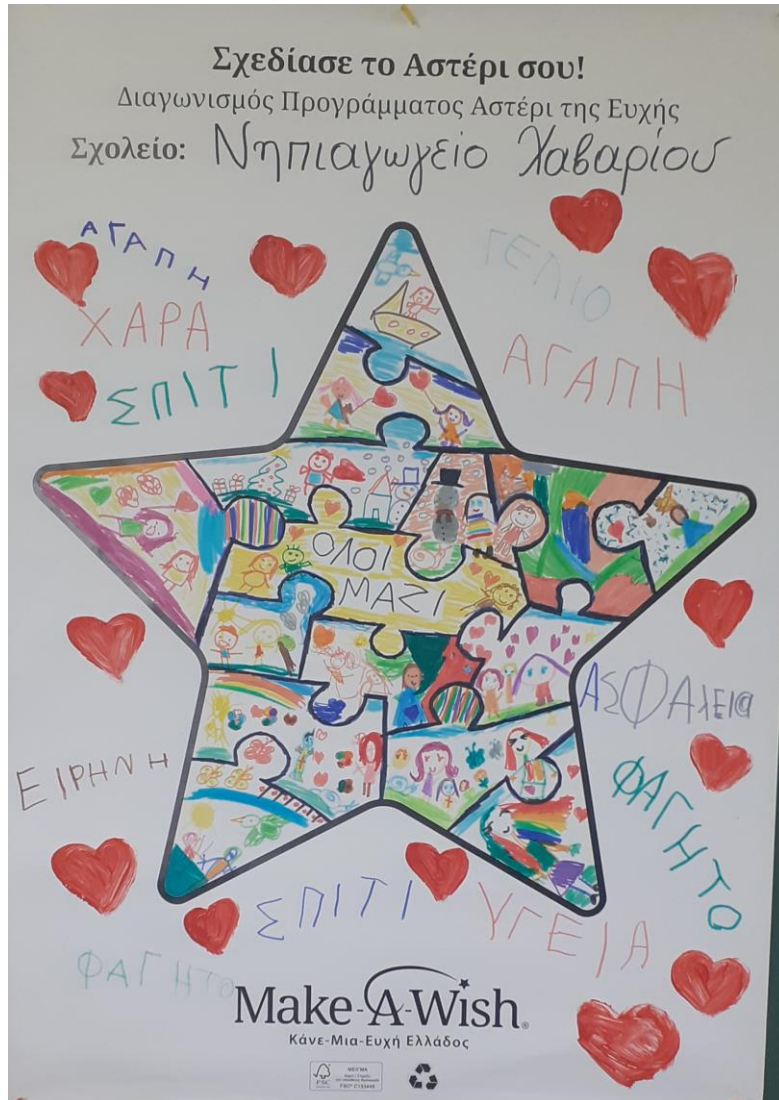 Σχεδίασε το Αστέρι σου!
Διαγωνισμός Προγράμματος Αστέρι της Ευχής
Σχολείο: Νηπιαγωγείο Χαβαρίου
ΑΓΑΠΗ
ΓΕΛΙΟ
ΧΑΡΑ
ΑΓΑΠΗ
ΣΠΙΤΙ
ΟΛΟΙ
ΜΑΖΙ
ΑΣΦΑλΕΙα
ΕΙΡΗΝΗ
ΦΑΓΗΤΟ
ΣΠΙΤΙ
ΥΓΕΙΑ
ΦΑΓΗΤΟ
Make-A-Wish®
Κάνε-Μια-Ευχή Ελλάδος
FSC
ΜΕΙΓΜΑ